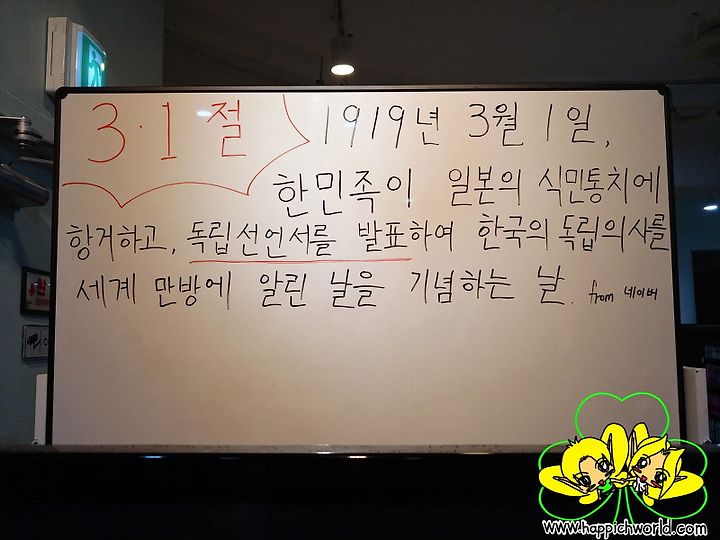 3·1 절
1919년 3월 1일,
한민족이 일본의 식민통치에
항거하고, 독립선언서를 발표하여 한국의 독립의사를
세계 만방에 알린 날을 기념하는 날. from 네이버
www.happichworld.com